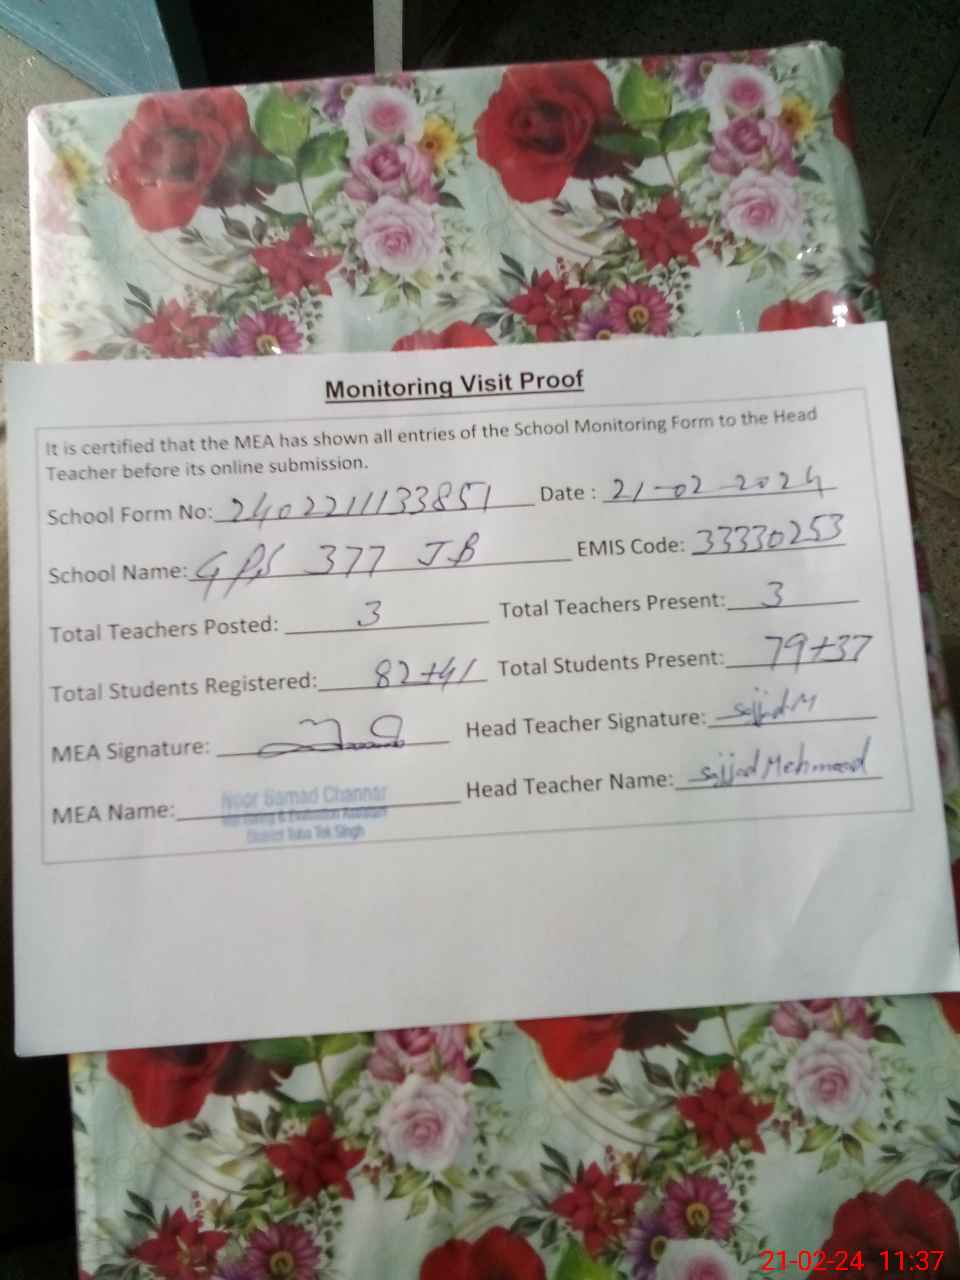 Monitoring Visit Proof
It is certified that the MEA has shown all entries of the School Monitoring Form to the Head
Teacher before its online submission.
School Form No: 2402211133851 Date : 21-02-2024
School Name: GPS 377 JB EMIS Code: 33330253
Total Teachers Posted: 3 Total Teachers Present: 3
Total Students Registered: 82+41 Total Students Present: 79+37
MEA Signature: Head Teacher Signature: Sajjad M
MEA Name: Noor Samad Channar Head Teacher Name: Sajjad Mehmood
Monitoring & Evaluation Assistant
District Toba Tek Singh
21-02-24 11:37